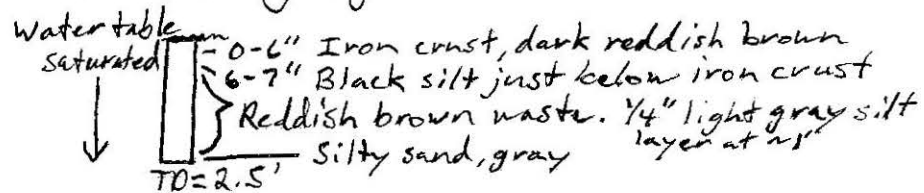 Water table
saturated
0-6" Iron crust, dark reddish brown
6-7" Black silt just below iron crust
Reddish brown waste. 1/4" light gray silt
layer at ~1'
Silty sand, gray
TD=2.5'